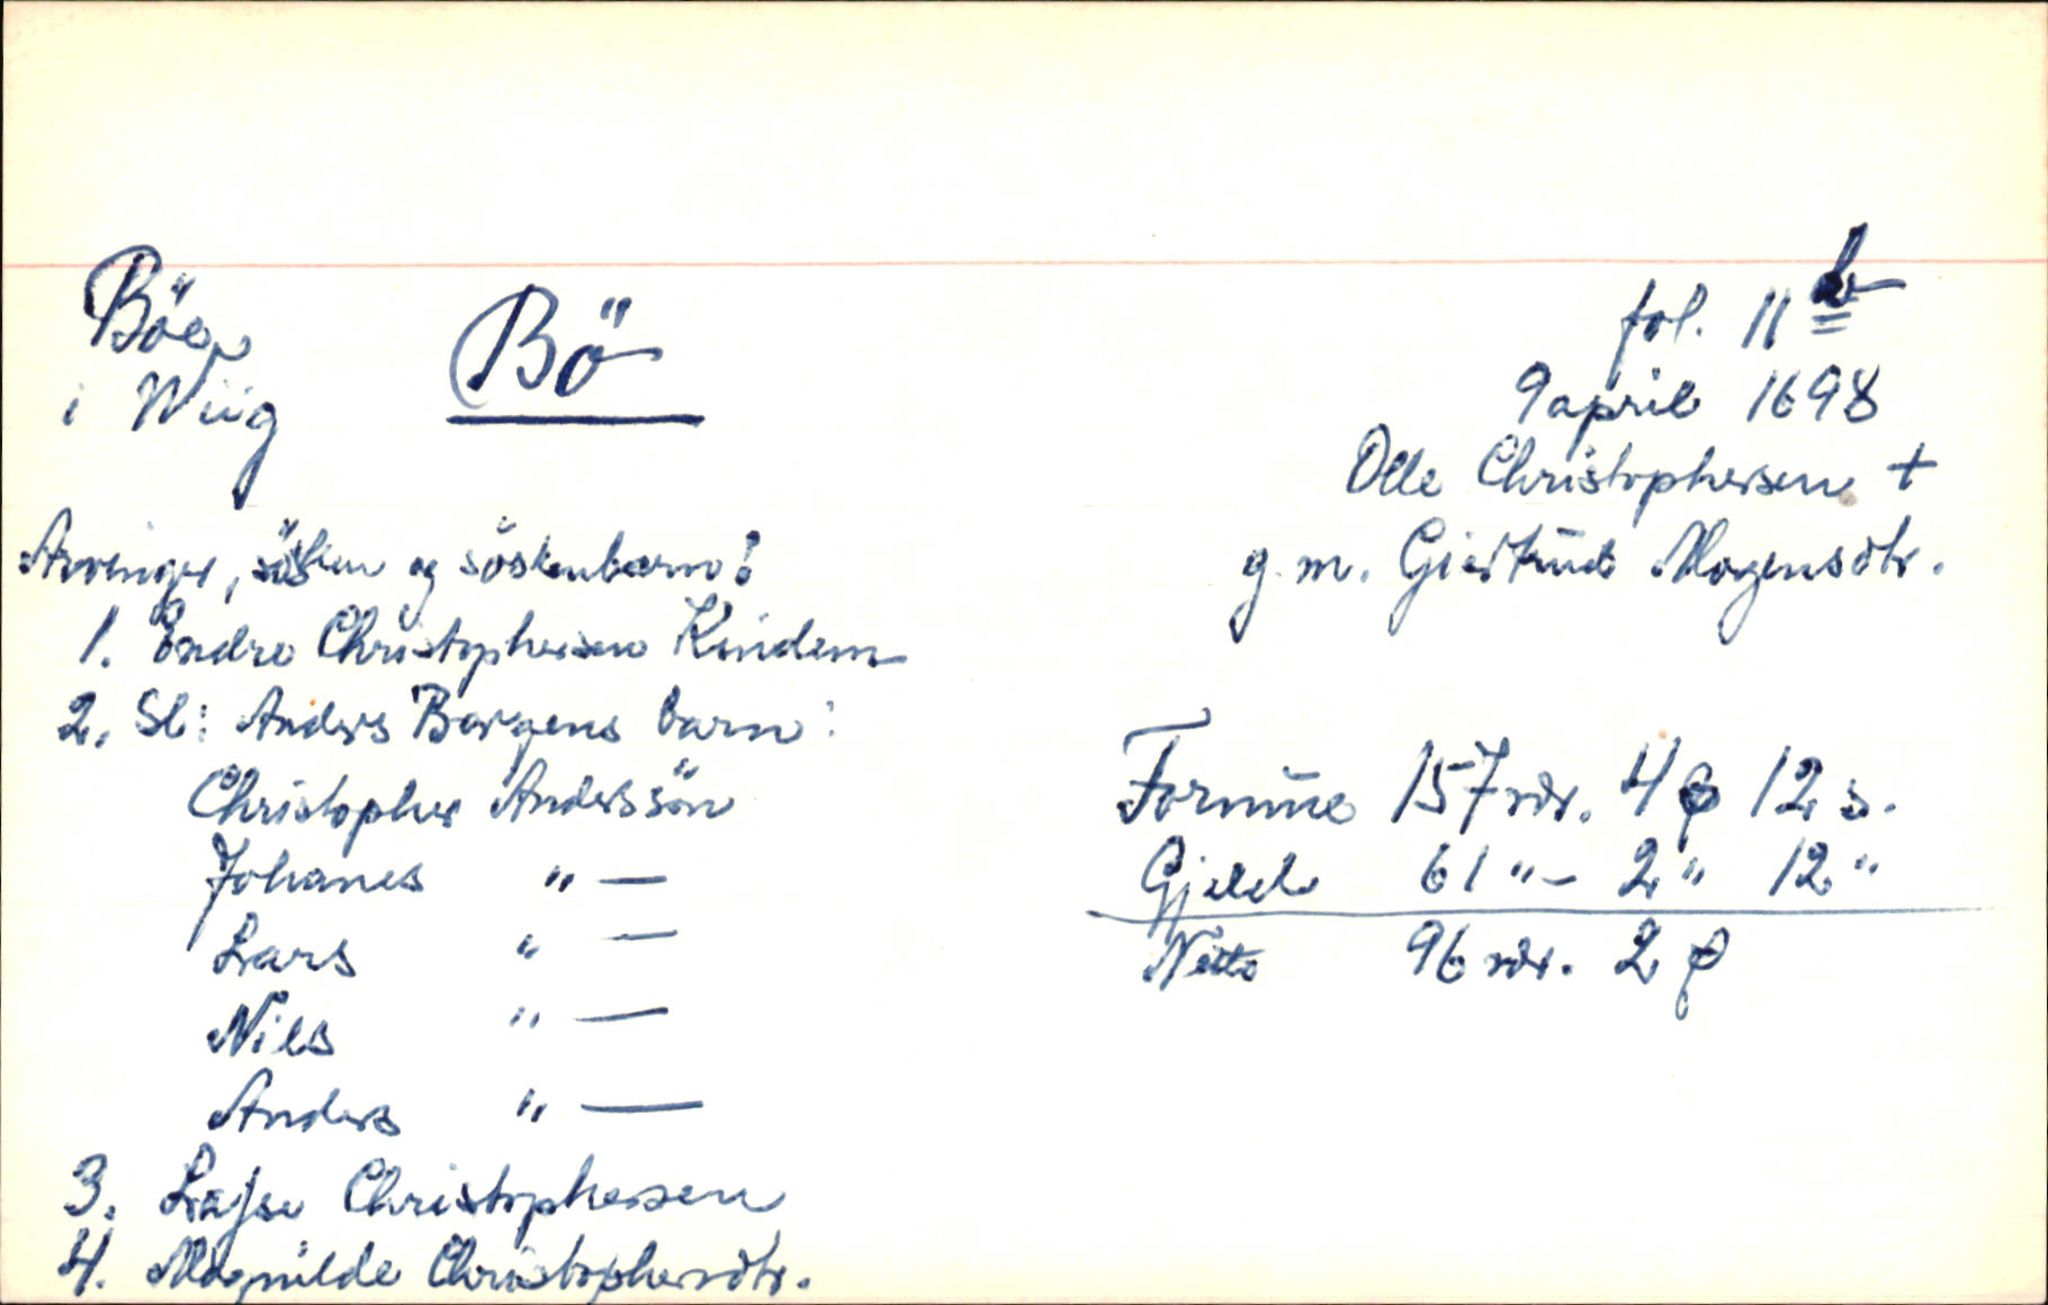 Böe
i Wiig
Bö
fol. 11 b
9 april 1698
Olle Christophersen +
g. m. Giertrud Mogensdtr.
Arvinger, sösken og söskenbarn:
1. Endre Christophersen Kindem
2. Sl: Anders Borgens barn:
Christopher Anderssön
Johanes " —
Lars " —
Nils " —
Anders " —
3. Lasse Christophersen
4. Magnilde Christophersdtr.
Formue 157 rdr. 4 ꝑ 12 s.
Gjeld 61 " – 2 " 12 "
Netto 96 rdr. 2 ꝑ